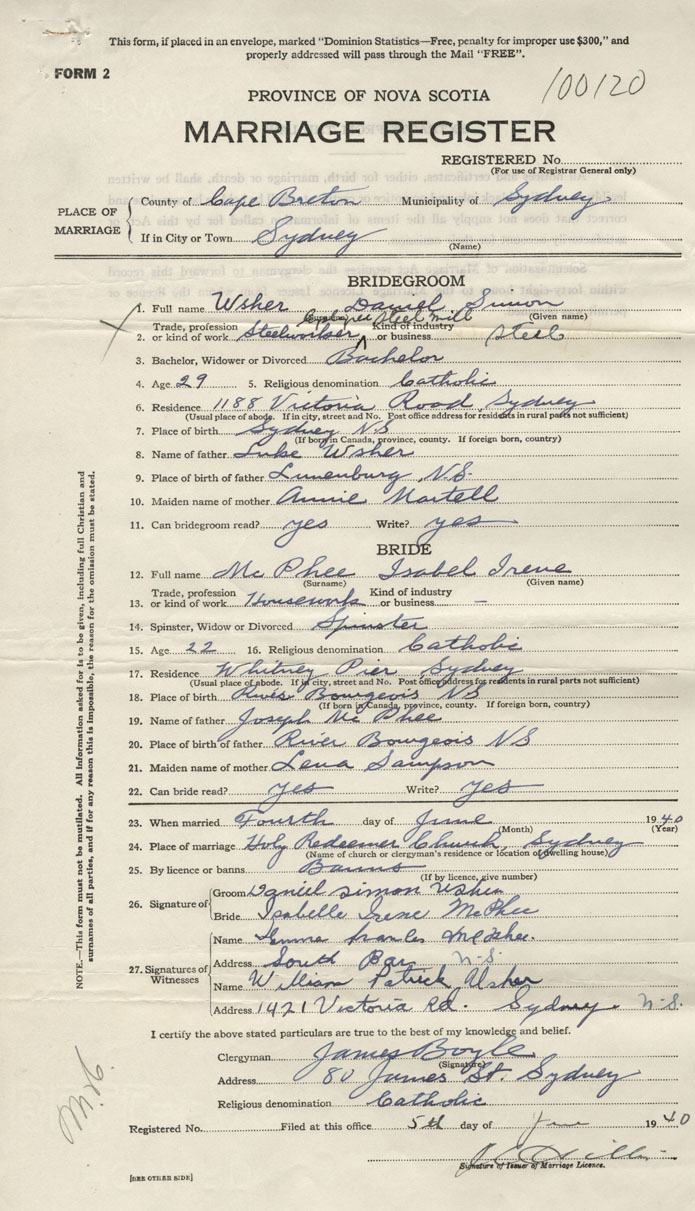 This form, if placed in an envelope, marked "Dominion Statistics—Free, penalty for improper use $300," and
properly addressed will pass through the Mail "FREE".
FORM 2
100120
PROVINCE OF NOVA SCOTIA
MARRIAGE REGISTER
REGISTERED No.
(For use of Registrar General only)
PLACE OF MARRIAGE
County of Cape Breton Municipality of Sydney
If in City or Town Sydney
(Name)
BRIDEGROOM
1. Full name Usher Daniel Simon
(Given name)
Steel Mill
2. Trade, profession or kind of work Kind of industry or business Steel
3. Bachelor, Widower or Divorced Bachelor
4. Age 29 5. Religious denomination Catholic
6. Residence 1188 Victoria Road Sydney
(Usual place of abode. If in city, street and No. Post office address for residents in rural parts not sufficient)
7. Place of birth Sydney N.S.
(If born in Canada, province, county. If foreign born, country)
8. Name of father Luke Usher
9. Place of birth of father Lunenburg N.S.
10. Maiden name of mother Annie Martell
11. Can bridegroom read? yes Write? yes
BRIDE
12. Full name Mc Phee Isabel Irene
(Surname) (Given name)
13. Trade, profession or kind of work Housework Kind of industry or business –
14. Spinster, Widow or Divorced Spinster
15. Age 22 16. Religious denomination Catholic
17. Residence Whitney Pier Sydney
(Usual place of abode. If in city, street and No. Post office address for residents in rural parts not sufficient)
18. Place of birth River Bourgeois NS
(If born in Canada, province, county. If foreign born, country)
19. Name of father Joseph Mc Phee
20. Place of birth of father River Bourgeois NS
21. Maiden name of mother Lena Sampson
22. Can bride read? yes Write? yes
23. When married Fourth day of June 1940
(Month) (Year)
24. Place of marriage Holy Redeemer Church, Sydney
(Name of church or clergyman's residence or location of dwelling house)
25. By licence or banns Banns
(If by licence, give number)
26. Signature of
Groom Daniel Simon Usher
Bride Isabelle Irene McPhee
27. Signatures of Witnesses
Name Frances McPhee.
Address South Bar N.S.
Name William Patrick Usher
Address 1421 Victoria Rd. Sydney N.S.
I certify the above stated particulars are true to the best of my knowledge and belief.
Clergyman James Boyle
(Signature)
Address 80 James St. Sydney
Religious denomination Catholic
Registered No. Filed at this office 5th day of June 1940
Signature of Issuer of Marriage Licence.
[SEE OTHER SIDE]
NOTE.—This form must not be mutilated. All information asked for is to be given, including full Christian and
surnames of all parties, and if for any reason this is impossible, the reason for the omission must be stated.